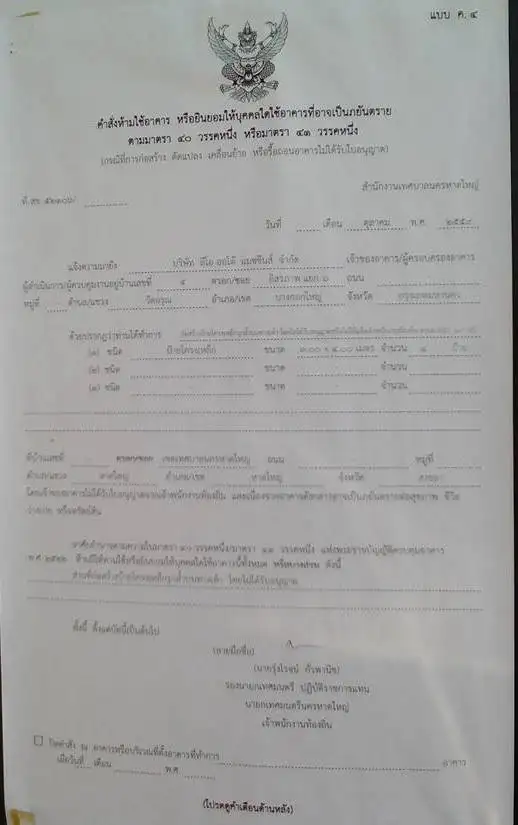 แบบ ค. ๔
คำสั่งห้ามใช้อาคาร หรือยินยอมให้บุคคลใดใช้อาคารที่อาจเป็นภยันตราย
ตามมาตรา ๔๐ วรรคหนึ่ง หรือมาตรา ๔๑ วรรคหนึ่ง
(กรณีที่การก่อสร้าง ดัดแปลง เคลื่อนย้าย หรือรื้อถอนอาคารไม่ได้รับใบอนุญาต)
สำนักงานเทศบาลนครหาดใหญ่
ที่ สข ๕๒๑๐๒/
วันที่ เดือน ตุลาคม พ.ศ. ๒๕๕๔
แจ้งความมายัง บริษัท แมชชีนส์ จำกัด เจ้าของอาคาร/ผู้ครอบครองอาคาร
ผู้ดำเนินการ/ผู้ควบคุมงานอยู่บ้านเลขที่ ๔ ตรอก/ซอย อิสรภาพ แยก ๖ ถนน
หมู่ที่ ตำบล/แขวง วัดอรุณ อำเภอ/เขต บางกอกใหญ่ จังหวัด กรุงเทพมหานคร
ด้วยปรากฏว่าท่านได้ทำการ
(๑) ชนิด ป้ายโครงเหล็ก ขนาด ๓.๐๐ x ๔.๐๐ เมตร จำนวน ๔ ป้าย
(๒) ชนิด ขนาด จำนวน
(๓) ชนิด ขนาด จำนวน
ที่บ้านเลขที่ ตรอก/ซอย เขตเทศบาลนครหาดใหญ่ ถนน หมู่ที่
ตำบล/แขวง หาดใหญ่ อำเภอ/เขต หาดใหญ่ จังหวัด สงขลา
โดยเจ้าของอาคารไม่ได้รับใบอนุญาตจากเจ้าพนักงานท้องถิ่น และเนื่องจากอาคารดังกล่าวอาจเป็นภยันตรายต่อสุขภาพ ชีวิต
ร่างกาย หรือทรัพย์สิน
อาศัยอำนาจตามความในมาตรา ๔๐ วรรคหนึ่ง/มาตรา ๔๑ วรรคหนึ่ง แห่งพระราชบัญญัติควบคุมอาคาร
พ.ศ. ๒๕๒๒ ห้ามมิให้ท่านใช้หรือยินยอมให้บุคคลใดใช้อาคารนี้ทั้งหมด หรือบางส่วน ดังนี้
โดยไม่ได้รับอนุญาต
ทั้งนี้ ตั้งแต่บัดนี้เป็นต้นไป
(ลายมือชื่อ)
(นายรุ่งโรจน์)
รองนายกเทศมนตรี ปฏิบัติราชการแทน
นายกเทศมนตรีนครหาดใหญ่
เจ้าพนักงานท้องถิ่น
ปิดคำสั่ง ณ อาคารหรือบริเวณที่ตั้งอาคารที่ทำการ อาคาร
เมื่อวันที่ เดือน พ.ศ.
(โปรดดูคำเตือนด้านหลัง)